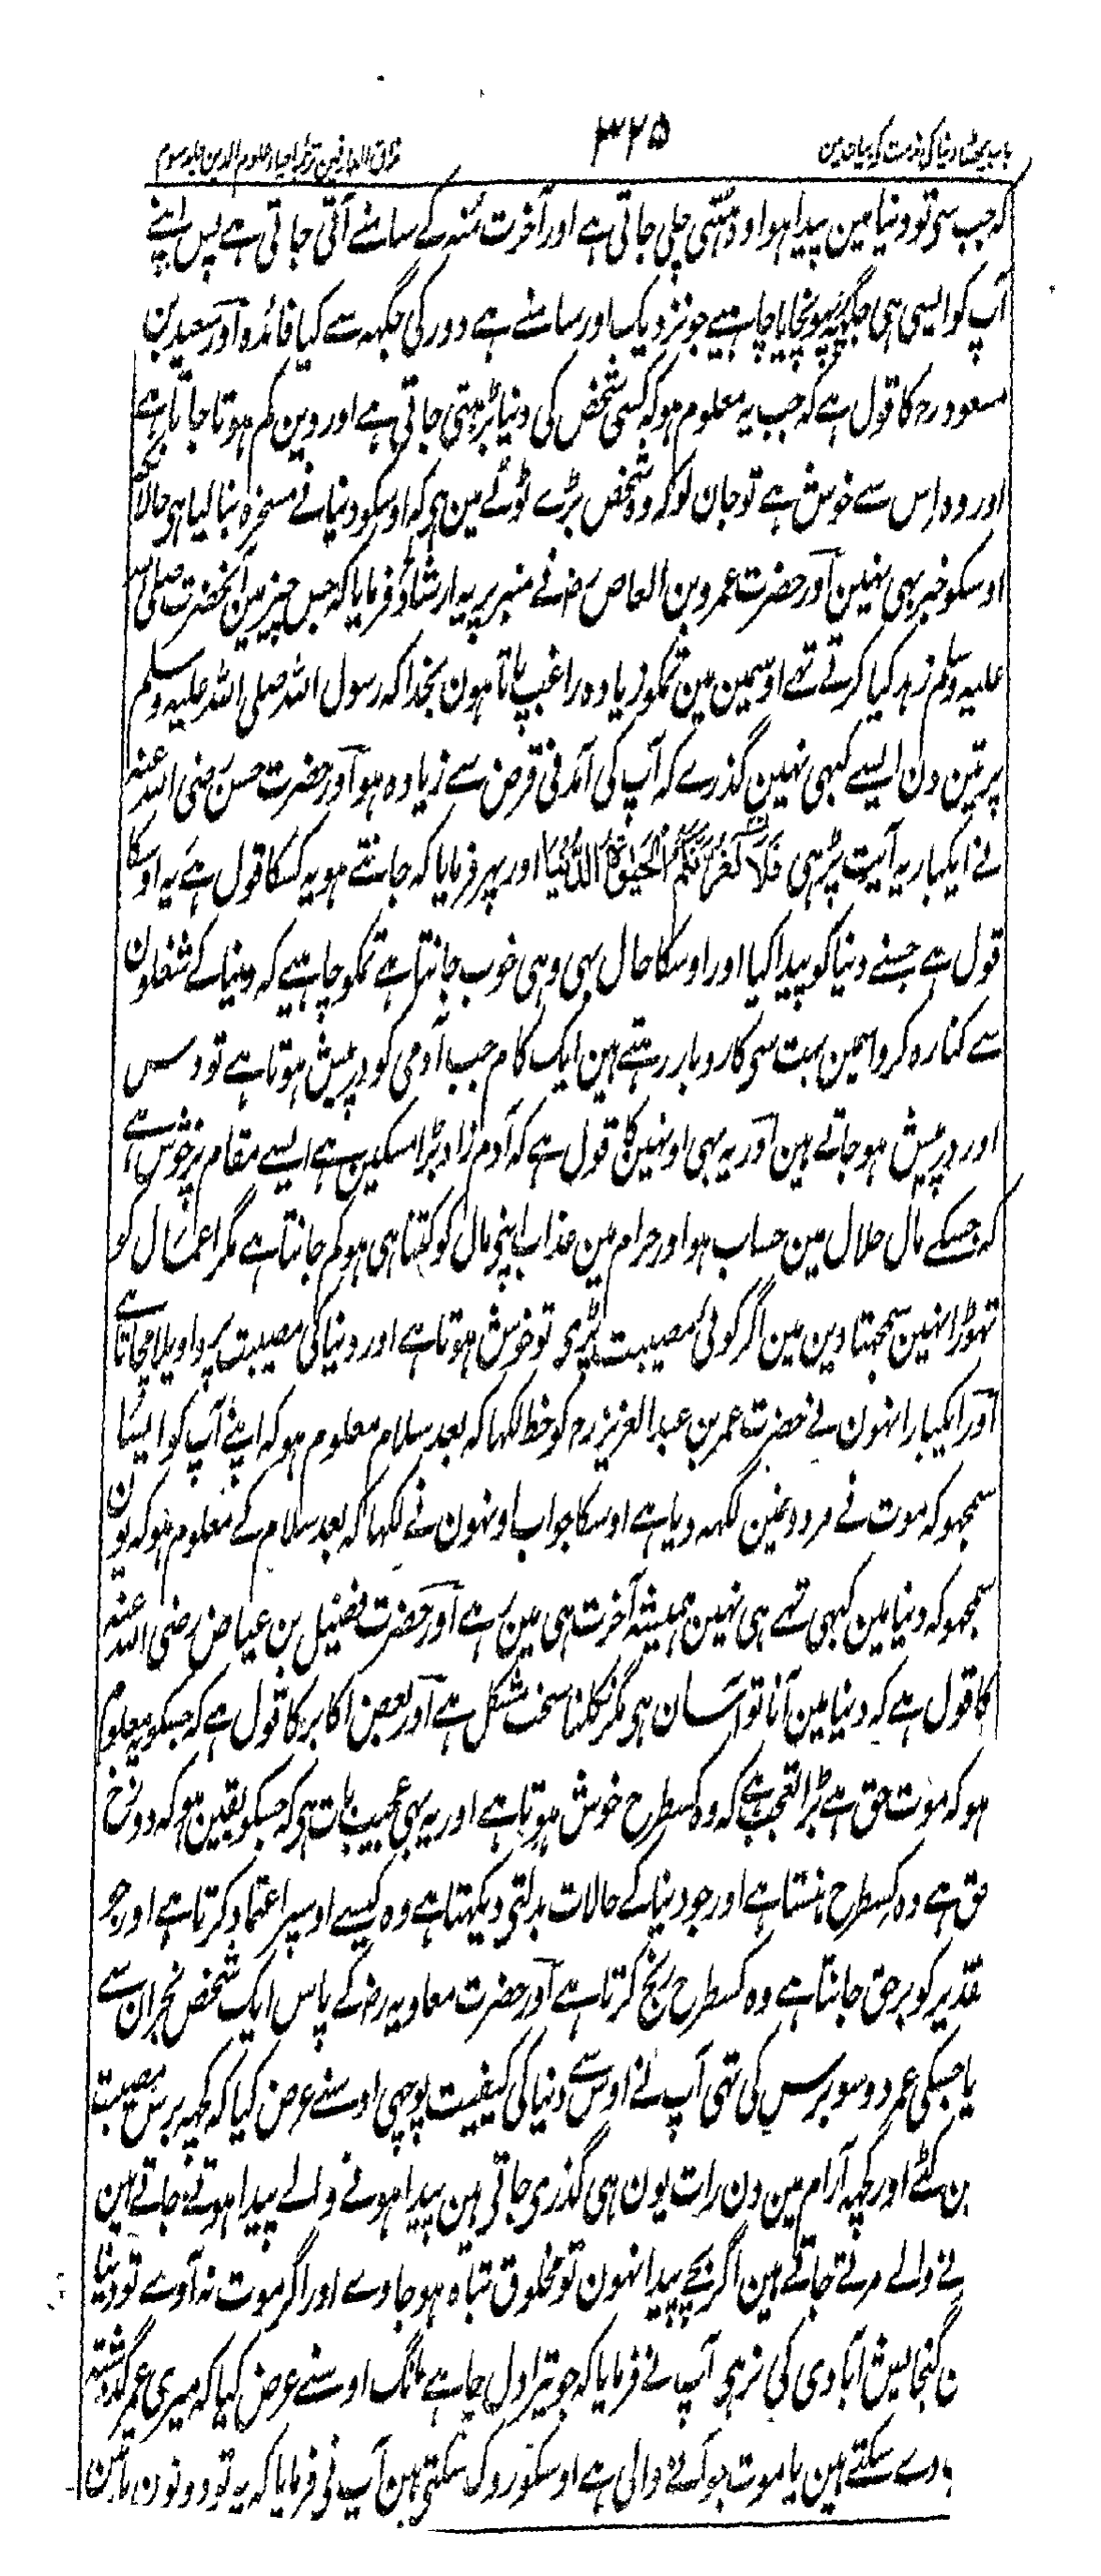 باب ششم دنیا کی مذمت کے بیان مین
۳۲۵
مذاق العارفین ترجمہ احیاء علوم الدین جلد سوم
کہ جب سی تو دنیا مین پیدا ہوا وہ ہٹتی چلی جاتی ہے اور آخرت منہ کے سامنے آتی جاتی ہے پس اپنے
آپ کو ایسی ہی جگہہ پہونچانا چاہیے جو نزدیک اور سامنے ہے دور کی جگہہ سے کیا فائدہ اور سعید بن
مسعود رح کا قول ہے کہ جب یہ معلوم ہو کہ کسی شخص کی دنیا بڑہتی جاتی ہے اور دین کم ہوتا جاتا ہے
اور وہ اِس سے خوش ہے تو جان لو کہ وہ شخص بڑے ٹوٹے مین ہی کہ اوسکو دنیا نے مسخرہ بنا لیا ہی حالانکہ
اوسکو خبر بہی نہین اور حضرت عمرو بن العاص رض نے منبر پر یہ ارشاد فرمایا کہ جس چیز مین آنحضرت صلی اللہ
علیہ وسلم زہد کیا کرتے تہے اوسمین مین تمکو زیادہ راغب پاتا ہون بخدا کہ رسول اللہ صلی اللہ علیہ وسلم
پر تین دن ایسے کبہی نہین گذرے کہ آپ کی آمدنی قرض سے زیادہ ہو اور حضرت حسن رضی اللہ عنہ
نے ایکبار یہ آیت پڑہی فَلَا تَغُرَّنَّكُمُ الْحَيٰوةُ الدُّنْيَا اور پہر فرمایا کہ جانتے ہو یہ کسکا قول ہے یہ اوسکا
قول ہے جسنے دنیا کو پیدا کیا اور اوسکا حال بہی وہی خوب جانتا ہے تمکو چاہیے کہ دنیا کے شغلون
سے کنارہ کرو اسمین بہت سی کاروبار رہتے ہین ایک کام جب آدمی کو درپیش ہوتا ہے تو دس
اور درپیش ہو جاتے ہین اور یہ بہی اونہین کا قول ہے کہ آدم زاد بڑا مسکین ہے ایسے مقام پر خوش ہے
کہ جسکے مال حلال مین حساب ہو اور حرام مین عذاب اپنی مال کو کتنا ہی ہو کم جانتا ہے مگر اعمال کو
تہوڑا نہین سمجہتا دین مین اگر کوئی مصیبت پڑی تو خوش ہوتا ہے اور دنیا کی مصیبت پر واویلا مچاتا ہے
اور ایکبار انہون نے حضرت عمر بن عبد العزیز رح کو خط لکہا کہ بعد سلام معلوم ہو کہ اپنے آپ کو ایسا
سمجہو کہ موت نے مردونمین لکہہ دیا ہے اوسکا جواب اونہون نے لکہا کہ بعد سلام کے معلوم ہو کہ یون
سمجہو کہ دنیا مین کبہی تہے ہی نہین ہمیشہ آخرت ہی مین رہے اور حضرت فضیل بن عیاض رضی اللہ عنہ
کا قول ہے کہ دنیا مین آنا تو آسان ہی مگر نکلنا سخت مشکل ہے اور بعض اکابر کا قول ہے کہ جسکو یہ معلوم
ہو کہ موت حق ہے بڑا تعجب ہے کہ وہ کسطرح خوش ہوتا ہے اور یہ بہی عجیب بات ہی کہ جسکو یقین ہو کہ دوزخ
حق ہے وہ کسطرح ہنستا ہے اور جو دنیا کے حالات بدلتی دیکہتا ہے وہ کیسے اوسپر اعتماد کرتا ہے اور جو
تقدیر کو برحق جانتا ہے وہ کسطرح رنج کرتا ہے اور حضرت معاویہ رض کے پاس ایک شخص نجران سے
یا جسکی عمر دو سو برس کی تہی آپ نے اوس سے دنیا کی کیفیت پوچہی اوسنے عرض کیا کہ کچہہ برس مصیبت
ین کٹے اور کچہہ آرام مین دن رات یون ہی گذری جاتی ہین پیدا ہونے والے پیدا ہوتے جاتے ہین
نے والے مرتے جاتے ہین اگر بچے پیدا نہون تو مخلوق تباہ ہو جاوے اور اگر موت نہ آوے تو دنیا
ن گنجایش آبادی کی نرہی آپ نے فرمایا کہ جو تیرا دل چاہے مانگ اوسنے عرض کیا کہ میری عمر گذشتہ
دے سکتے ہین یا موت جو آنے والی ہے اوسکو روک سکتی ہین آپ نی فرمایا کہ یہ تو دونون باتین